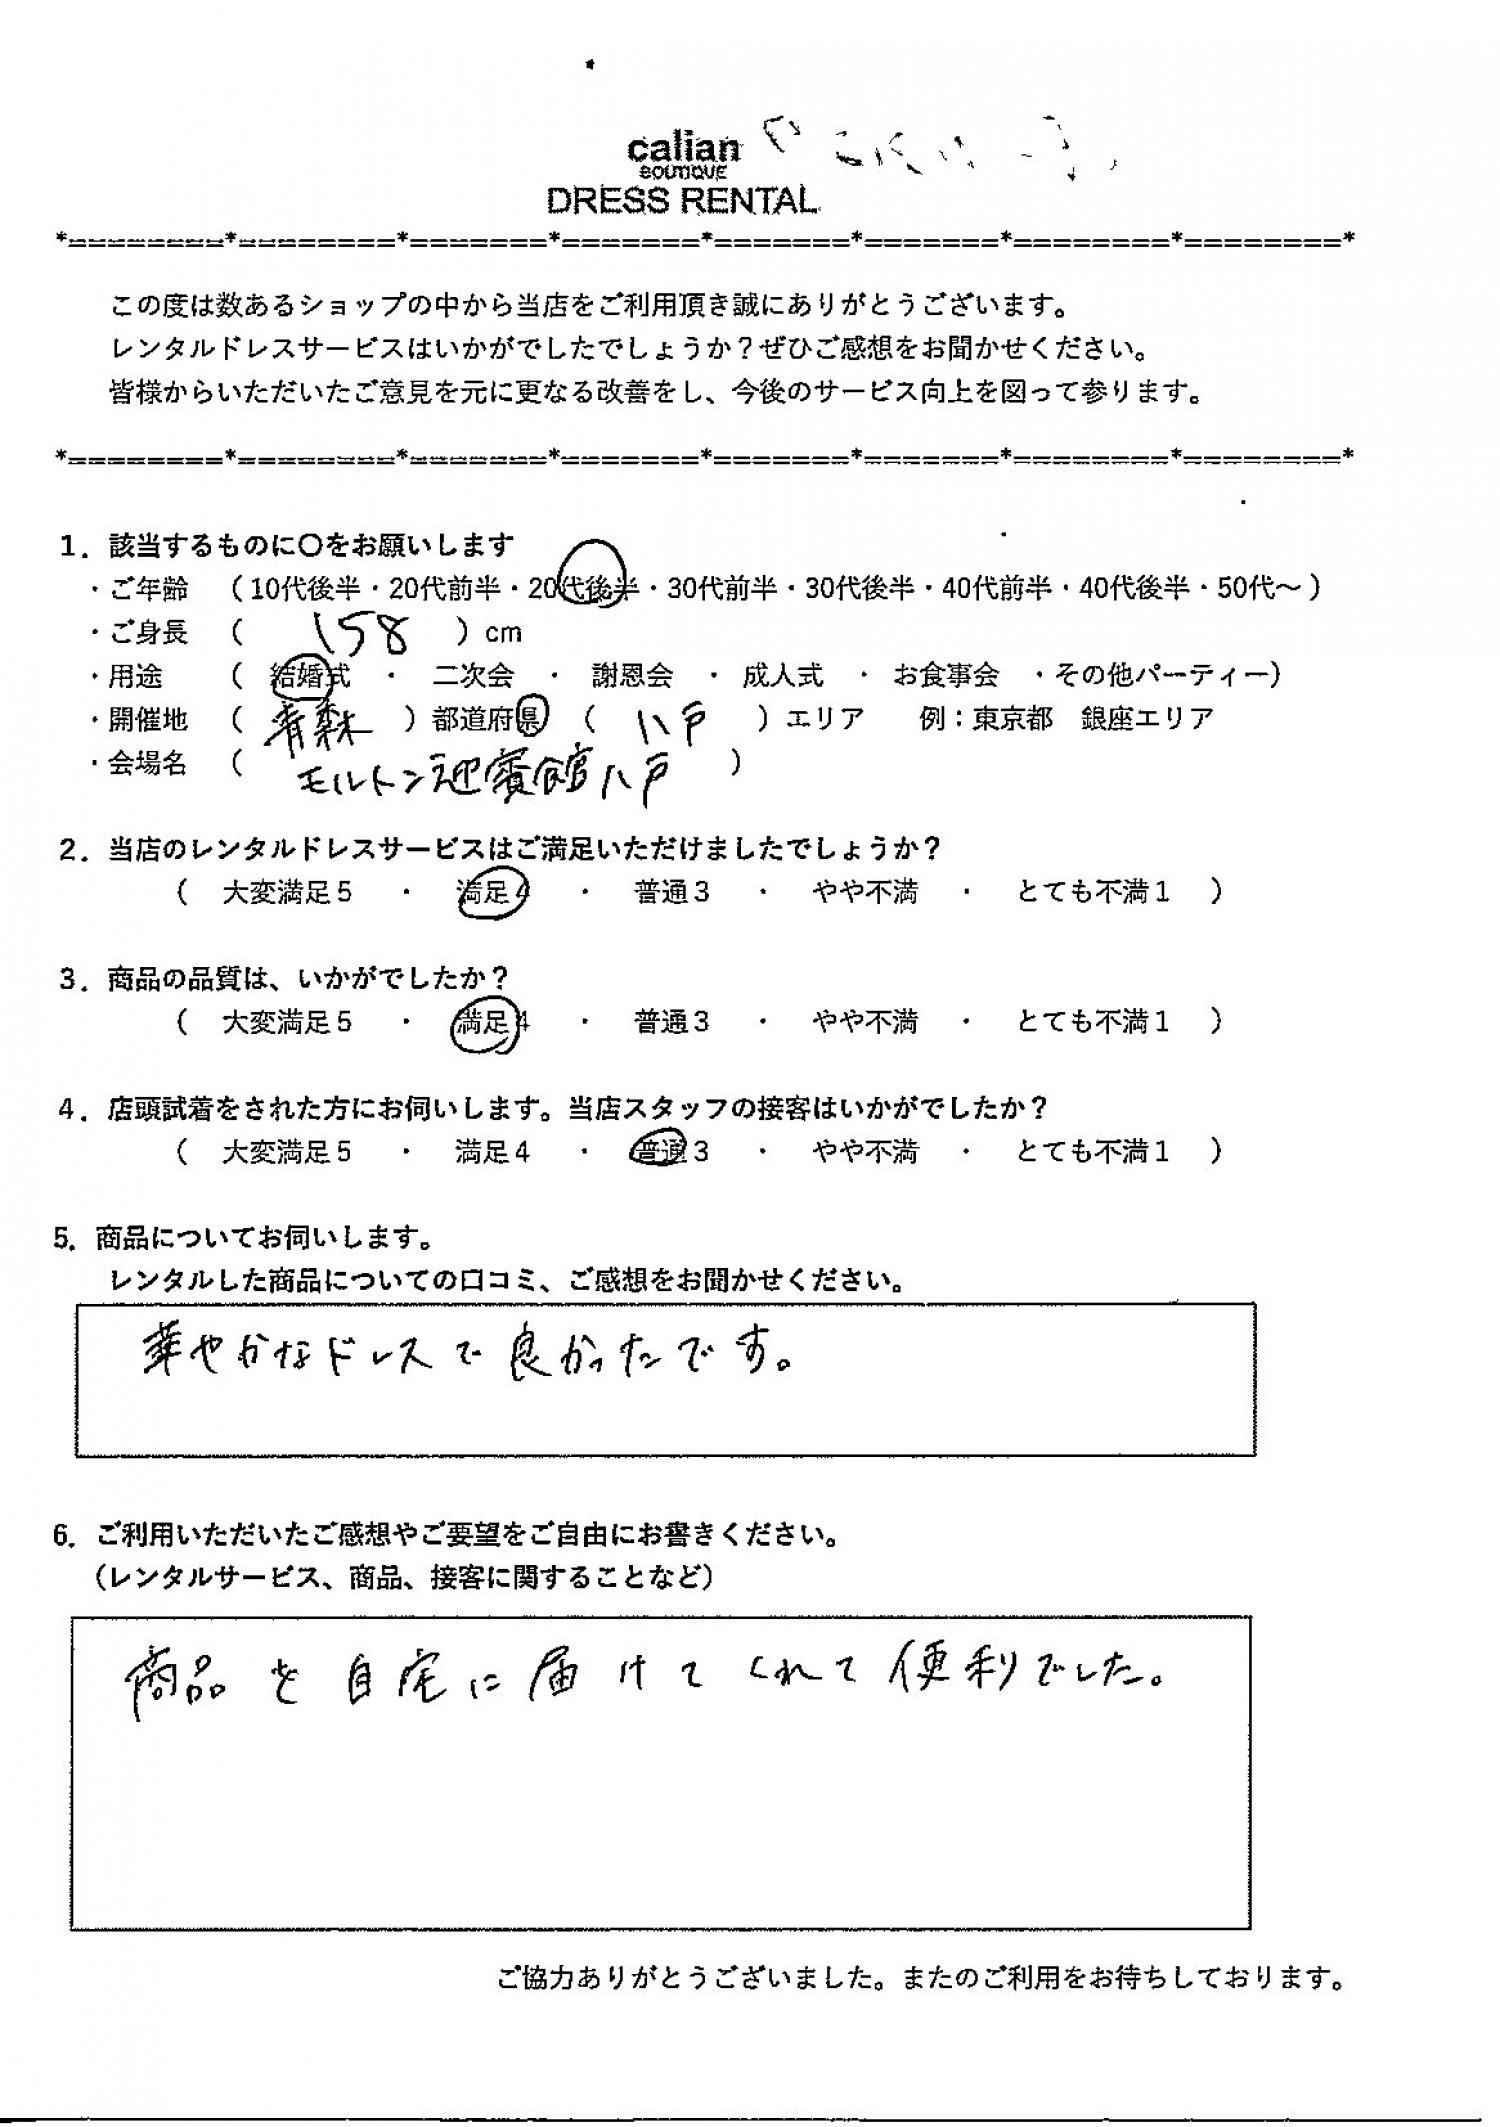 calian
BOUTIQUE
DRESS RENTAL
*========*========*=======*=======*=======*=======*========*========*
この度は数あるショップの中から当店をご利用頂き誠にありがとうございます。
レンタルドレスサービスはいかがでしたでしょうか？ぜひご感想をお聞かせください。
皆様からいただいたご意見を元に更なる改善をし、今後のサービス向上を図って参ります。
*========*========*=======*=======*=======*=======*========*========*
1．該当するものに〇をお願いします
・ご年齢 （10代後半・20代前半・20代後半・30代前半・30代後半・40代前半・40代後半・50代～）
・ご身長 （ 158 ）cm
・用途 （ 結婚式 ・ 二次会 ・ 謝恩会 ・ 成人式 ・ お食事会 ・その他パーティー）
・開催地 （ 青森 ）都道府県 （ 八戸 ）エリア 例：東京都 銀座エリア
・会場名 （ モルトン迎賓館八戸 ）
2．当店のレンタルドレスサービスはご満足いただけましたでしょうか？
（ 大変満足5 ・ 満足4 ・ 普通3 ・ やや不満 ・ とても不満1 ）
3．商品の品質は、いかがでしたか？
（ 大変満足5 ・ 満足4 ・ 普通3 ・ やや不満 ・ とても不満1 ）
4．店頭試着をされた方にお伺いします。当店スタッフの接客はいかがでしたか？
（ 大変満足5 ・ 満足4 ・ 普通3 ・ やや不満 ・ とても不満1 ）
5．商品についてお伺いします。
レンタルした商品についての口コミ、ご感想をお聞かせください。
華やかなドレスで良かったです。
6．ご利用いただいたご感想やご要望をご自由にお書きください。
（レンタルサービス、商品、接客に関することなど）
商品を自宅に届けてくれて便利でした。
ご協力ありがとうございました。またのご利用をお待ちしております。